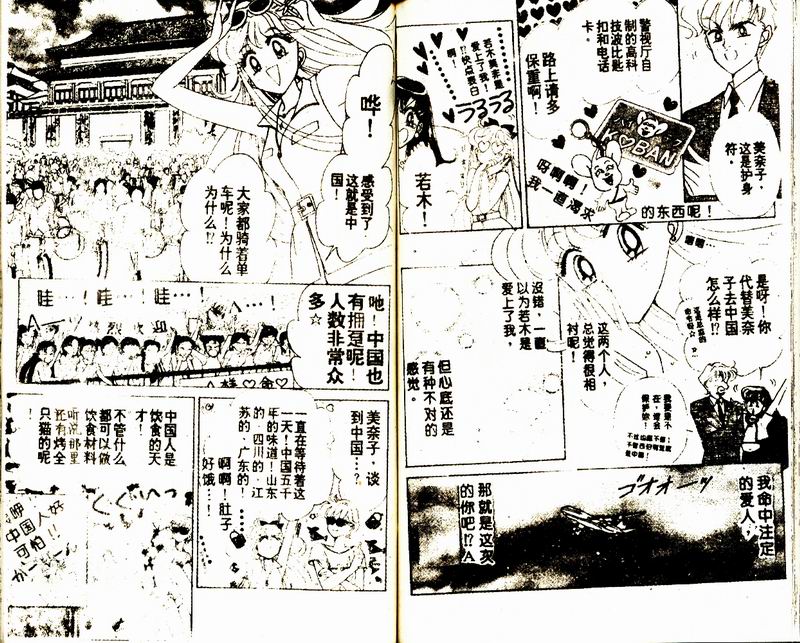 美奈子，
这是护身
符．
警视厅自
制的高科
技波比匙
扣和电话
卡．
路上请多
保重啊！
K♡BAN
呀啊啊！
我一直渴求
的东西呢！
爱上了我！
啊！
うるうる
若木！
是呀！你
代替美奈
子去中国
怎么样!?
这两个人，
总觉得很相
衬呢！
沒错，一直
以为若木是
爱上了我，
但心底还是
有种不对的
感觉。
我命中注定
的爱人，
ゴオオーッ
那就是这次
的你吧!?
哗！
感受到了
这就是中
国！
大家都骑着单
车呢！为什么
为什么!?
吔！中国也
有拥趸呢！
人数非常众
多☆
哇…！哇…！哇…！
美奈子，谈
到中国…？
一直在等待着这
一天！中国五千
年的味道！山东
的．四川的．江
苏的．广东的！
啊啊！肚子
好饿…！
中国人是
饮食的天
才！
不管什么
都可以做
饮食材料
听说那里
还有烤全
只猫的呢
！
中国人好
可怕！